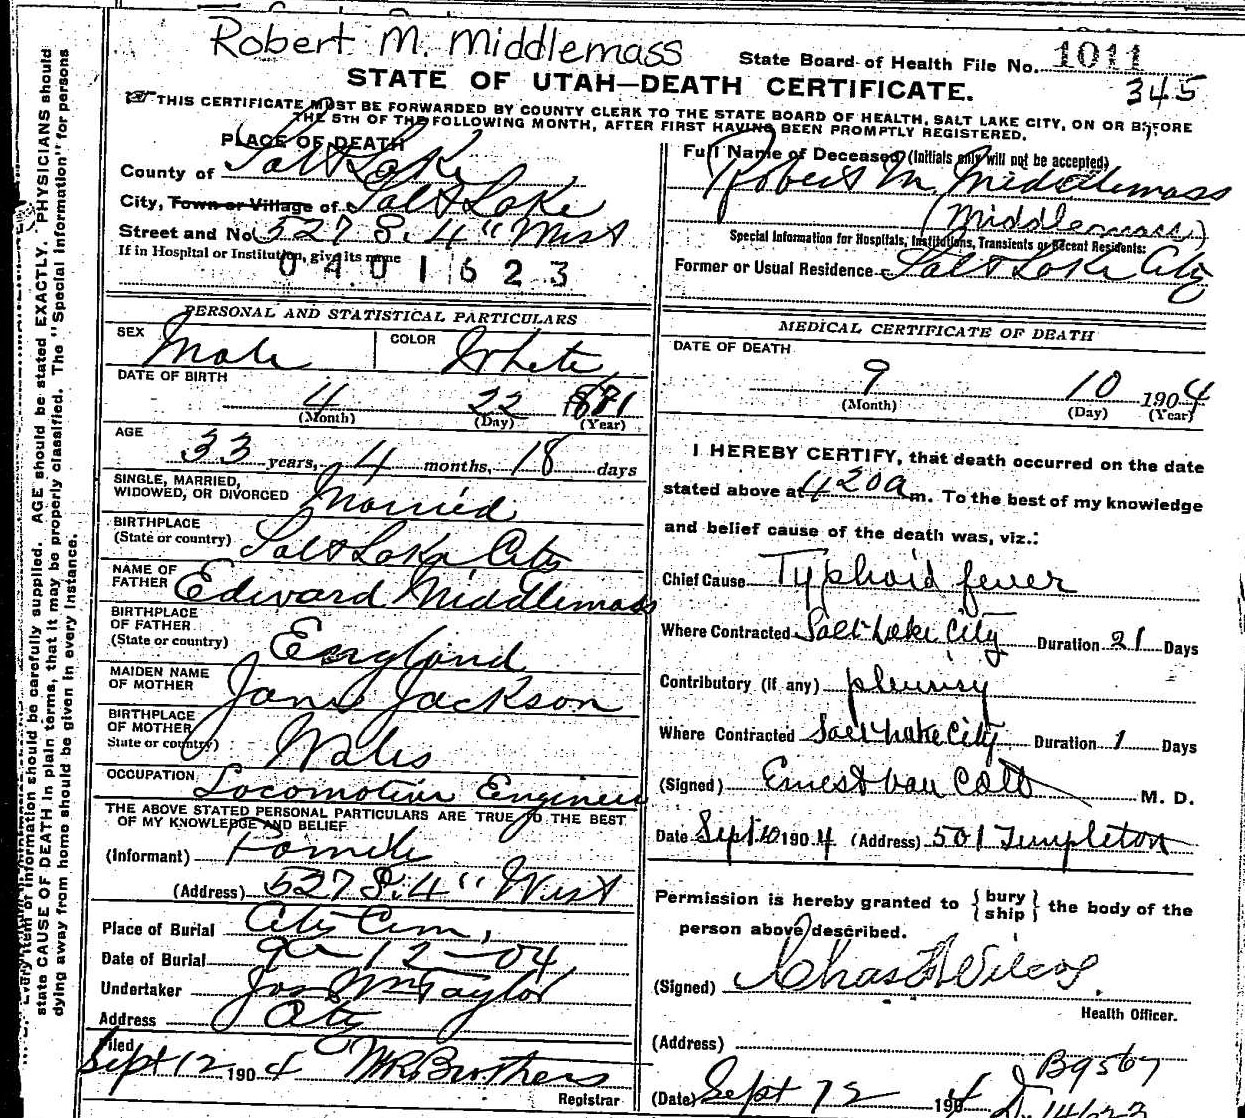 Robert M. Middlemass
State Board of Health File No. 1011
345
STATE OF UTAH—DEATH CERTIFICATE.
☞ THIS CERTIFICATE MUST BE FORWARDED BY COUNTY CLERK TO THE STATE BOARD OF HEALTH, SALT LAKE CITY, ON OR BEFORE
THE 5TH OF THE FOLLOWING MONTH, AFTER FIRST HAVING BEEN PROMPTLY REGISTERED.
PLACE OF DEATH
County of Salt Lake
City, Town or Village of Salt Lake
Street and No. 527 S. 4" West
If in Hospital or Institution, give its name
0401623
Full Name of Deceased (Initials only will not be accepted)
Robert M. Middlemass
(Middlemass)
Special Information for Hospitals, Institutions, Transients or Recent Residents:
Former or Usual Residence Salt Lake City
PERSONAL AND STATISTICAL PARTICULARS
SEX Male COLOR White
DATE OF BIRTH
4 22 1871
(Month) (Day) (Year)
AGE
33 years, 4 months, 18 days
SINGLE, MARRIED,
WIDOWED, OR DIVORCED Married
BIRTHPLACE
(State or country) Salt Lake City
NAME OF
FATHER Edward Middlemass
BIRTHPLACE
OF FATHER
(State or country) England
MAIDEN NAME
OF MOTHER Jane Jackson
BIRTHPLACE
OF MOTHER
State or country) Wales
OCCUPATION Locomotive Engineer
THE ABOVE STATED PERSONAL PARTICULARS ARE TRUE TO THE BEST
OF MY KNOWLEDGE AND BELIEF
(Informant) Family
(Address) 527 S. 4" West
Place of Burial City Cem,
Date of Burial 9-12-04
Undertaker Jos Wm Taylor
Address City
Filed
Sept 12 1904 Brothers
Registrar
MEDICAL CERTIFICATE OF DEATH
DATE OF DEATH
9 10 1904
(Month) (Day) (Year)
I HEREBY CERTIFY, that death occurred on the date
stated above at 420 a m. To the best of my knowledge
and belief cause of the death was, viz.:
Chief Cause Typhoid fever
Where Contracted Salt Lake City Duration 21 Days
Contributory (if any) pleurisy
Where Contracted Salt Lake City Duration 1 Days
(Signed) Ernest Van Cott M. D.
Date Sept 10 1904 (Address) 501 Templeton
Permission is hereby granted to {bury
ship} the body of the
person above described.
(Signed) Chas Wilcox.
Health Officer.
(Address)
B9567
(Date) Sept 12 1904
Every item of information should be carefully supplied. AGE should be stated EXACTLY. PHYSICIANS should
state CAUSE OF DEATH in plain terms, that it may be properly classified. The "Special Information" for persons
dying away from home should be given in every instance.